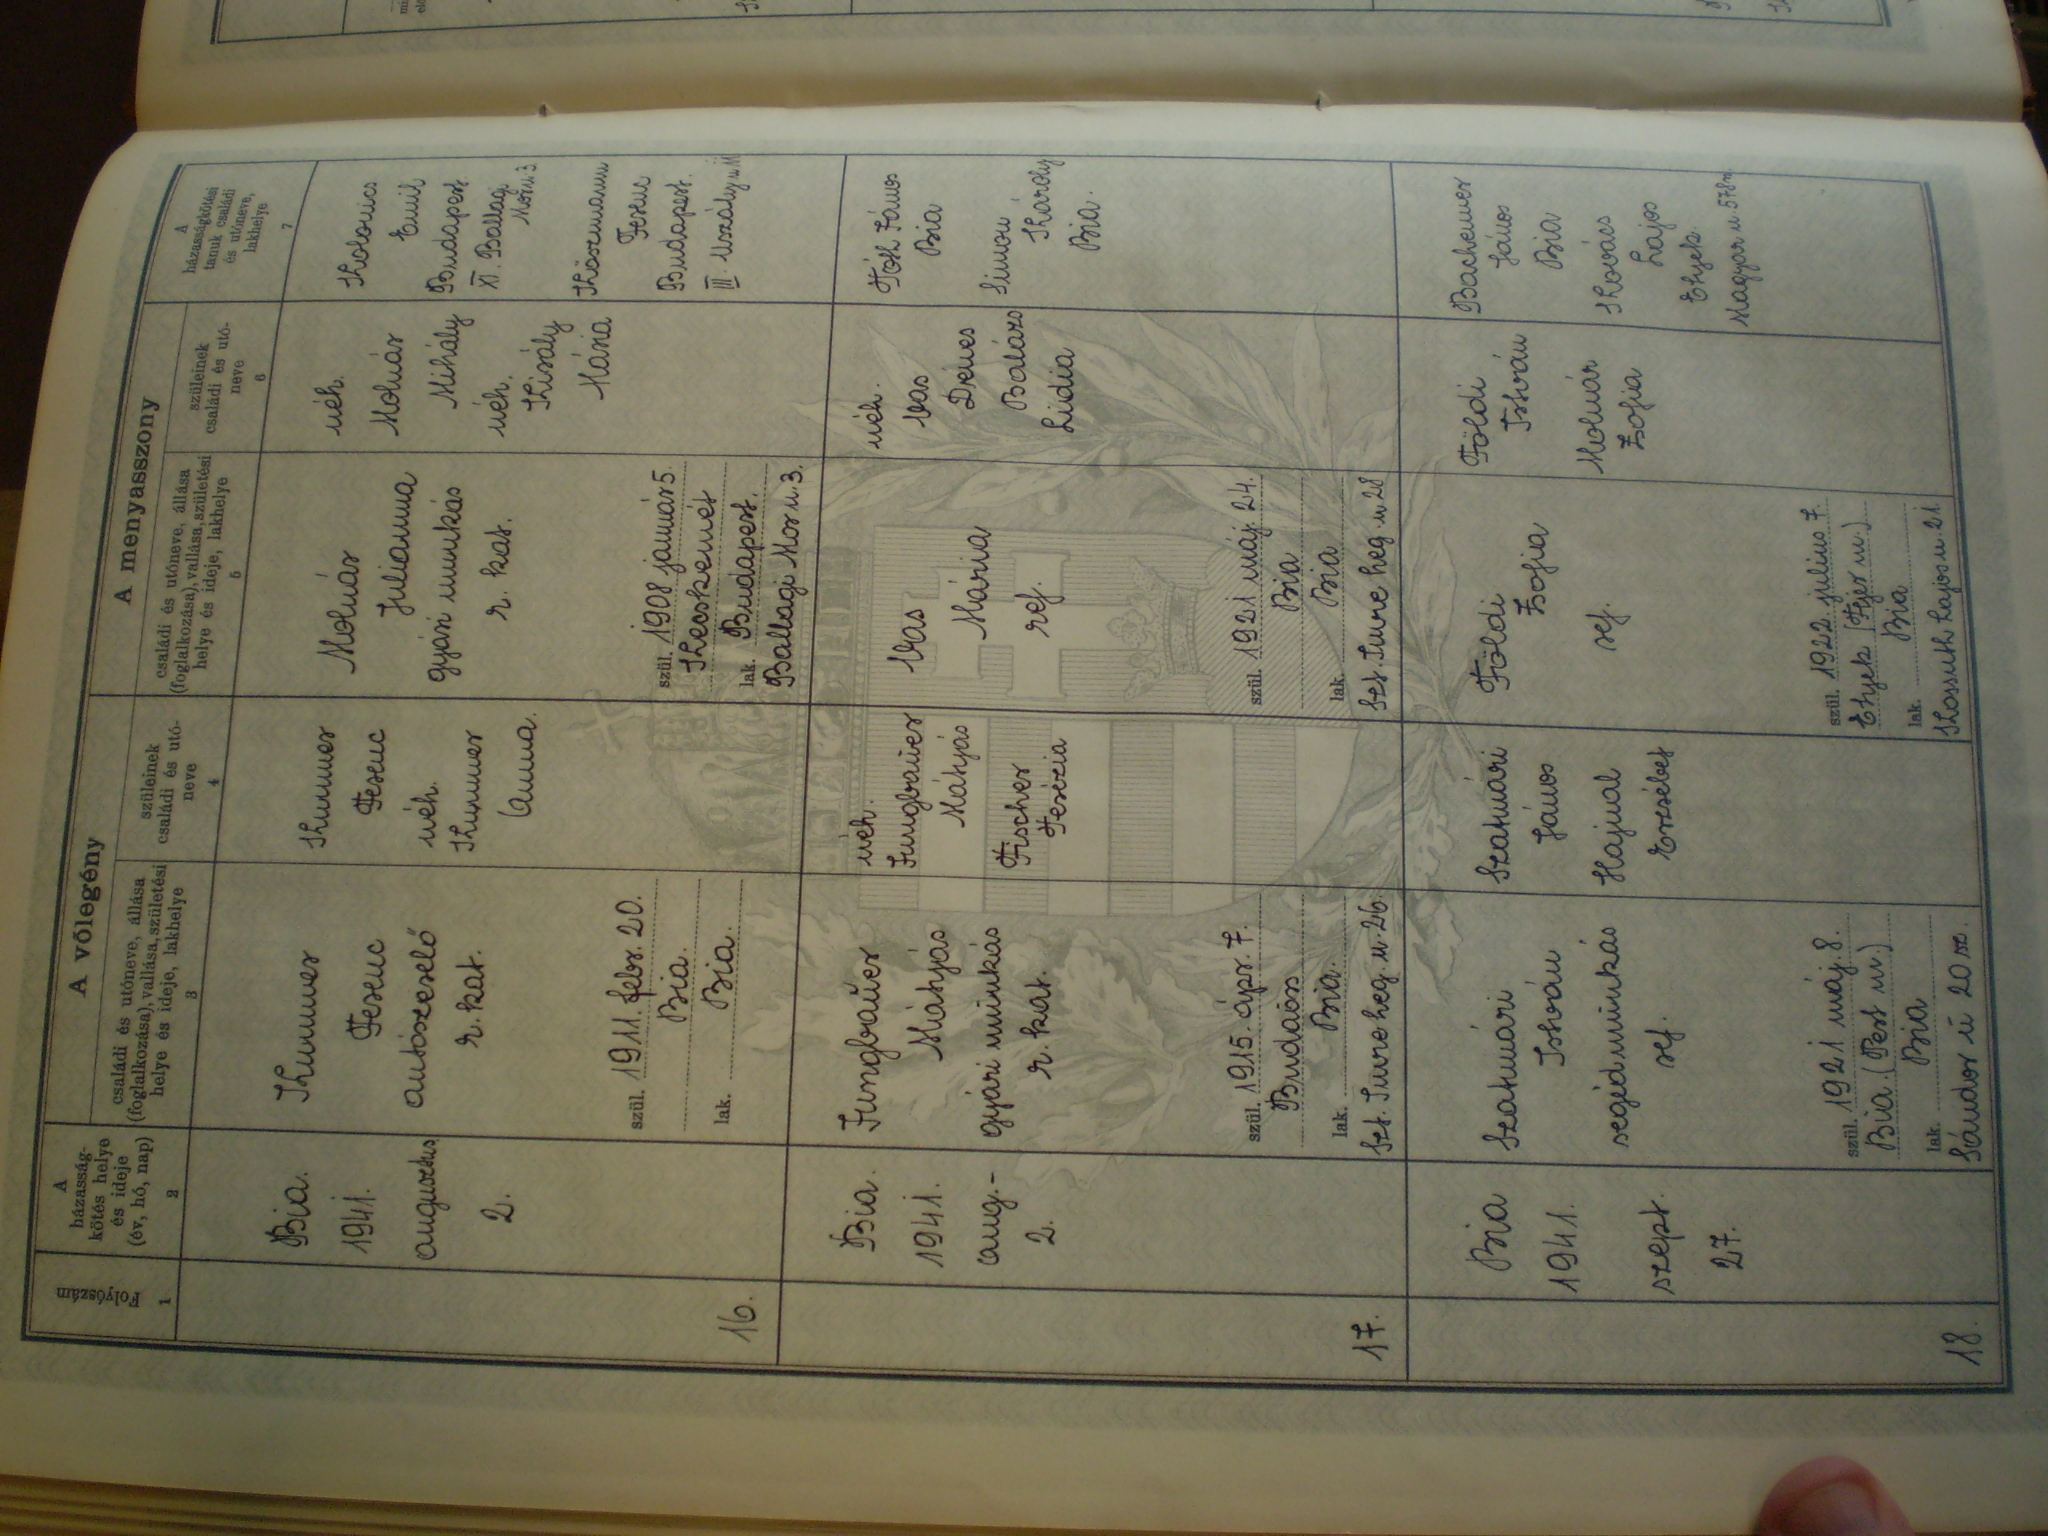 Folyószám
1
A
házasság-
kötés helye
és ideje
(év, hó, nap)
2
A vőlegény
családi és utóneve, állása
(foglalkozása), vallása, születési
helye és ideje, lakhelye
3
szüleinek
családi és utó-
neve
4
A menyasszony
családi és utóneve, állása
(foglalkozása), vallása, születési
helye és ideje, lakhelye
5
szüleinek
családi és utó-
neve
6
A
házasságkötési
tanuk családi
és utóneve,
lakhelye
7
16.
Bia.
1941.
augusztus
2.
Kummer
Ferenc
autószerelő
r. kat.
szül. 1911. febr. 20.
Bia.
lak. Bia.
Kummer
Ferenc
néh.
Kummer
Anna.
Molnár
Julianna
gyári munkás
r. kat.
szül. 1908 január 5.
Kecskemét
lak. Budapest.
Ballagi Mór u. 3.
néh.
Molnár
Mihály
néh.
Király
Mária
Kolonics
Emil
Budapest
XI. Ballagi
Mór u. 3.
Kőszmann
Ferenc
Budapest.
III.
17.
Bia.
1941.
aug.-
2.
Jungbauer
Mátyás
gyári munkás
r. kat.
szül. 1915. ápr. 7.
Budaörs
lak. Bia.
Szt. Imre heg. u. 26.
néh.
Jungbauer
Mátyás
Fischer
Terézia
Vas
Mária
ref.
szül. 1921 máj. 24.
Bia
lak. Bia
Szt. Imre heg. u. 28
néh.
Vas
Dénes
Balázs
Lidia
Tóth János
Bia
Simon
Károly
Bia.
18.
Bia
1941.
szept.
27.
Szatmári
István
segédmunkás
ref.
szül. 1921 máj. 8.
Bia. (Pest m.)
lak. Bia
Sándor ú 20 sz.
Szatmári
János
Hajnal
Erzsébet
Földi
Zsofia
ref.
szül. 1922. július 7.
Etyek (Fejér m.)
lak. Bia
Kossuth Lajos u. 21
Földi
István
Molnár
Zsofia
Bachemer
János
Bia
Kovács
Lajos
Etyek.
Magyar u. 578